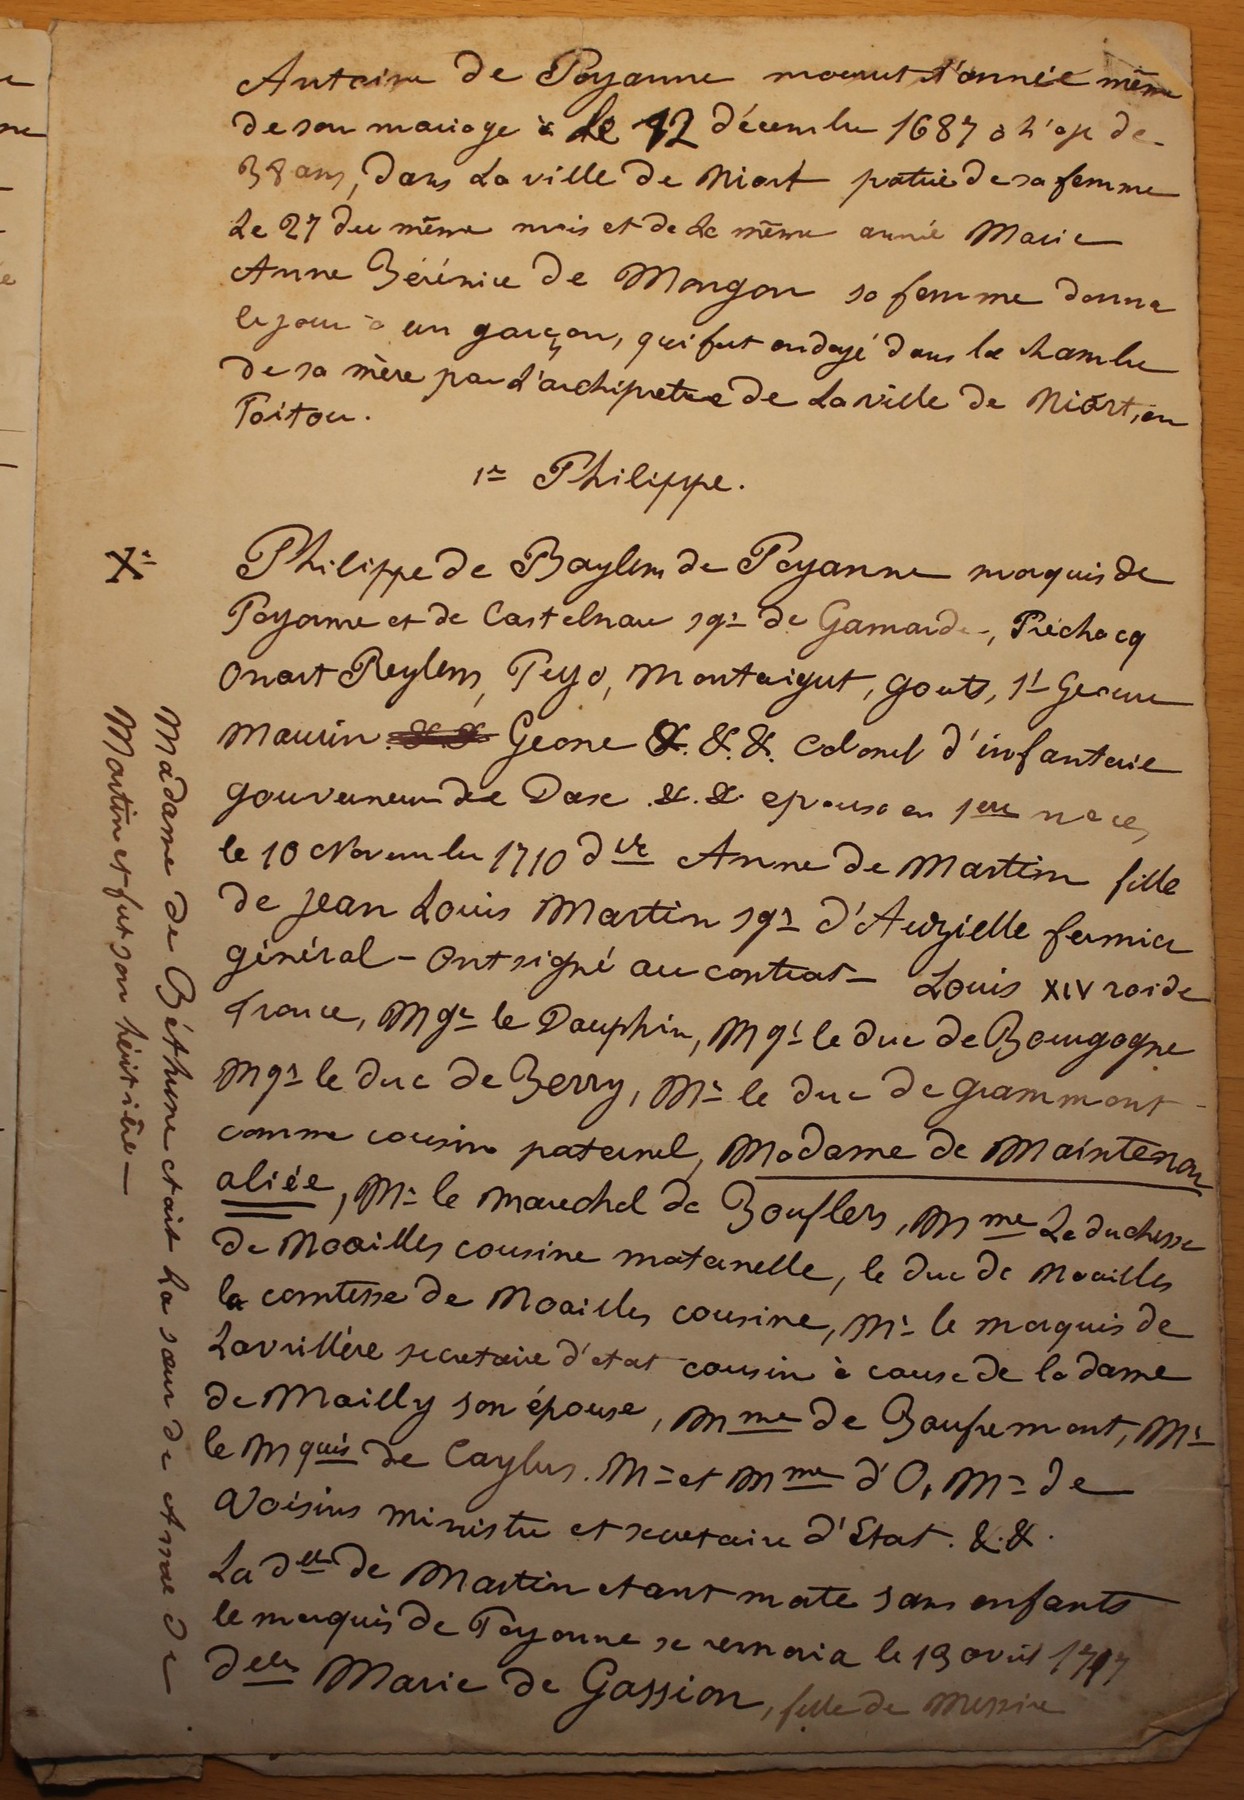 Antoine de Poyanne mourut l'année même
de son mariage à le 12 décembre 1687 à l'age de
38 ans, dans la ville de Niort patrie de sa femme
le 27 du même mois et de la même année Marie
Anne Bérénice de Mongon sa femme donna
le jour à un garçon, qui fut ondoyé dans la chambre
de sa mère par l'archipretre de la ville de Niort, en
Poitou.
1er Philippe.
X.
Philippe de Baylens de Poyanne marquis de
Poyanne et de Castelnau sgr de Gamarde, Préchacq
Onart Reylens, Peyo, Montaigut, gouts, St Geours
Maurin Geone &. &. &. Colonel d'infanterie
gouverneur de Dax .&.&. epousa en 1ere noces
le 10 Novembre 1710 dlle Anne de Martin fille
de Jean Louis Martin sgr d'Auzielle fermier
général - Ont signé au contrat - Louis XIV roi de
France, Mgr le Dauphin, Mgr le duc de Bourgogne
Mgr le duc de Berry, Mr le duc de grammont -
comme cousin paternel, Madame de Maintenon
aliée, Mr le marechal de Bouflers, Mme la duchesse
de Noailles cousine maternelle, le duc de Noailles
la comtesse de Noailles cousine, Mr le marquis de
Lavrillére secretaire d'etat cousin à cause de la dame
de Mailly son épouse, Mme de Baufremont, Mr
le Mquis de Caylus. Mr et Mme d'O, Mr de
Voisins ministre et secretaire d'Etat. &.&.
La dlle de Martin etant morte sans enfants
le marquis de Poyanne se remaria le 19 avril 1717
Delle Marie de Gassion, fille de Messire
Madame de Béthune etait la sœur de Anne de
Martin et fut son héritière —